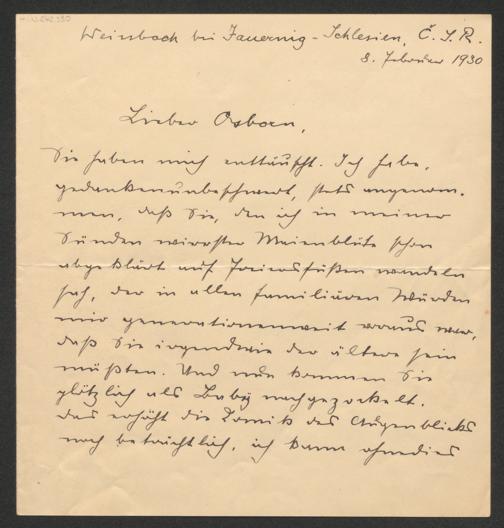 Weissbach bei Jauernig - Schlesien, Č.S.R.
8. Februar 1930
Lieber Osborn,
Sie haben mich enttäuscht. Ich habe,
gedankenunbeschwert, stets angenom-
men, daß Sie, den ich in meiner
Sünden wirrster Maienblüte schon
abgeklärt auf Freiersfüßen wandeln
sah, der in allen familiären Würden
mir generationenweit voraus war,
daß Sie irgendwie der ältere sein
müßten. Und nun kommen Sie
plötzlich als Baby nachgezockelt.
Das erhöht die Komik des Augenblicks
noch beträchtlich, ich kann ohnedies